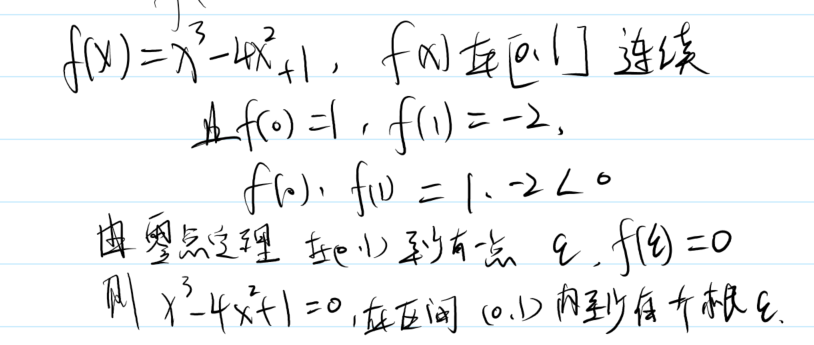 f(x)=x³-4x²+1, f(x)在[0,1]连续
且f(0)=1, f(1)=-2,
f(0)·f(1)=1·-2<0
由零点定理 在(0,1)至少有一点 ξ, f(ξ)=0
则 x³-4x²+1=0,在区间(0,1)内至少有个根ξ.